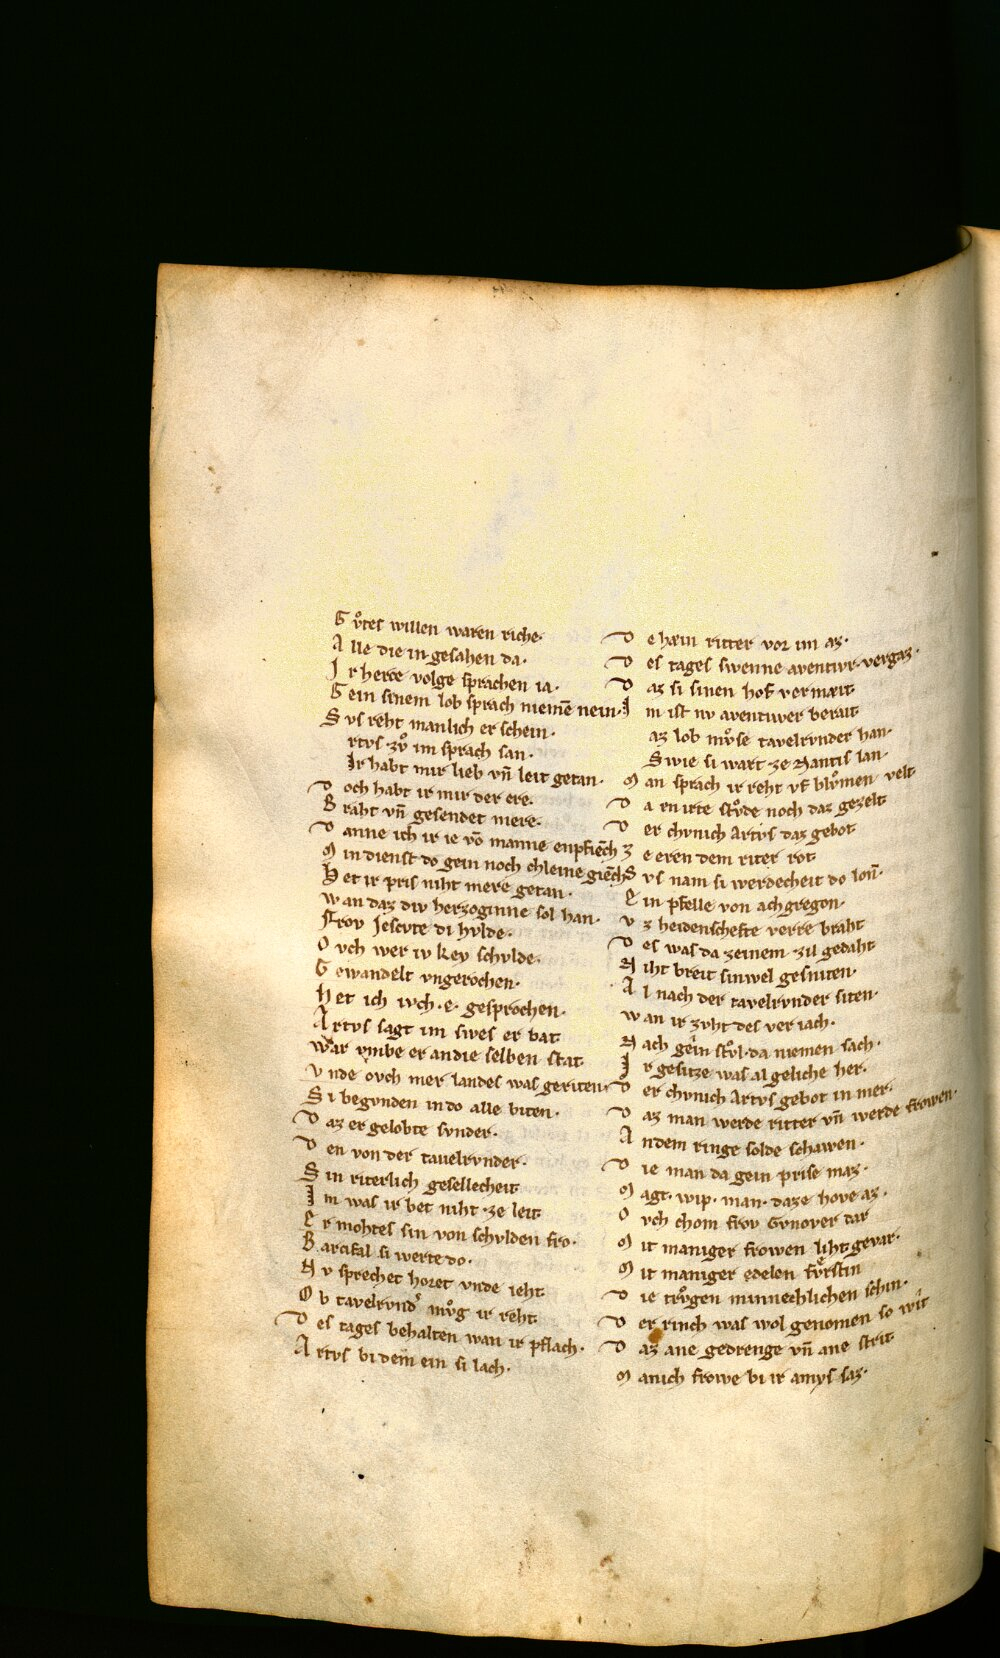 G vͦtes willen waren riche·
A lle die in gesahen da·
I r herce volge sprachen ia·
G ein sinem lob sprach niemē nein·
S vs reht manlich er schein·
rtvs zvͦ im sprach san·
Ir habt mir lieb vn̄ leit getan·
D och habt ir mir der ere·
B raht vn̄ gesendet mere·
D anne ich ir ie vō manne enpfiēch
M in dienst do gein noch chleine giēch
H et ir pris niht mere getan·
W an daz div herzoginne sol han·
Frov Jescvte di hvlde·
O vch wer iv key schvlde·
G ewandelt vngerochen·
H et ich ivch·e· gesprochen·
A rtvs sagt im swes er bat
War vmbe er an die selben stat
V nde ovch mer landes was geriten·
S i begvnden in do alle biten·
D az er gelobte svnder·
D en von der tauelrvnder·
S in riterlich gesellecheit
I m was ir bet niht ze leit
E r mohtes sin von schvlden fro·
B arcifal si werte do·
N v sprechet horet vnde ieht
O b tavelrvnd͛ mvͦg ir reht
D es tages behalten wan ir pflach·
A rtvs bi dem ein si lach·
D ehæin ritter vor im az·
D es tages swenne aventivr vergaz·
D az si sinen hof vermæit
I m ist nv aventiwer berait
az lob mvͦse tavelrvnder han·
Swie si wart ze Nantis lan·
M an sprach ir reht vf blvͦmen velt
D a en irte stvͦde noch daz gezelt
D er chvnich Artvs daz gebot
Z e eren dem riter rot
S vs nam si werdecheit do lon̄·
E in pfelle von achgregon·
V z heidenschefte verre braht
D es was da zeinem zil gedaht
N iht breit sinwel gesniten·
A l nach der tavelrvnder siten·
W an ir zvht des veriach·
N ach gein stvͦl da niemen sach·
I r gesitze was al geliche her·
D er chvnich Artvs gebot in mer·
D az man werde ritter vn̄ werde frowen·
A n dem ringe solde schawen·
D ie man da gein prise maz·
M agt·wip·man·daze hove az·
O vch chom frov Gynover dar
M it maniger frowen liht gevar·
M it maniger edelen fvͤrstin
D ie trvͦgen minnechlichen schin·
D er rinch was wol genomen so wît
D az ane gedrenge vn̄ ane strit
M anich frowe bi ir amys saz·